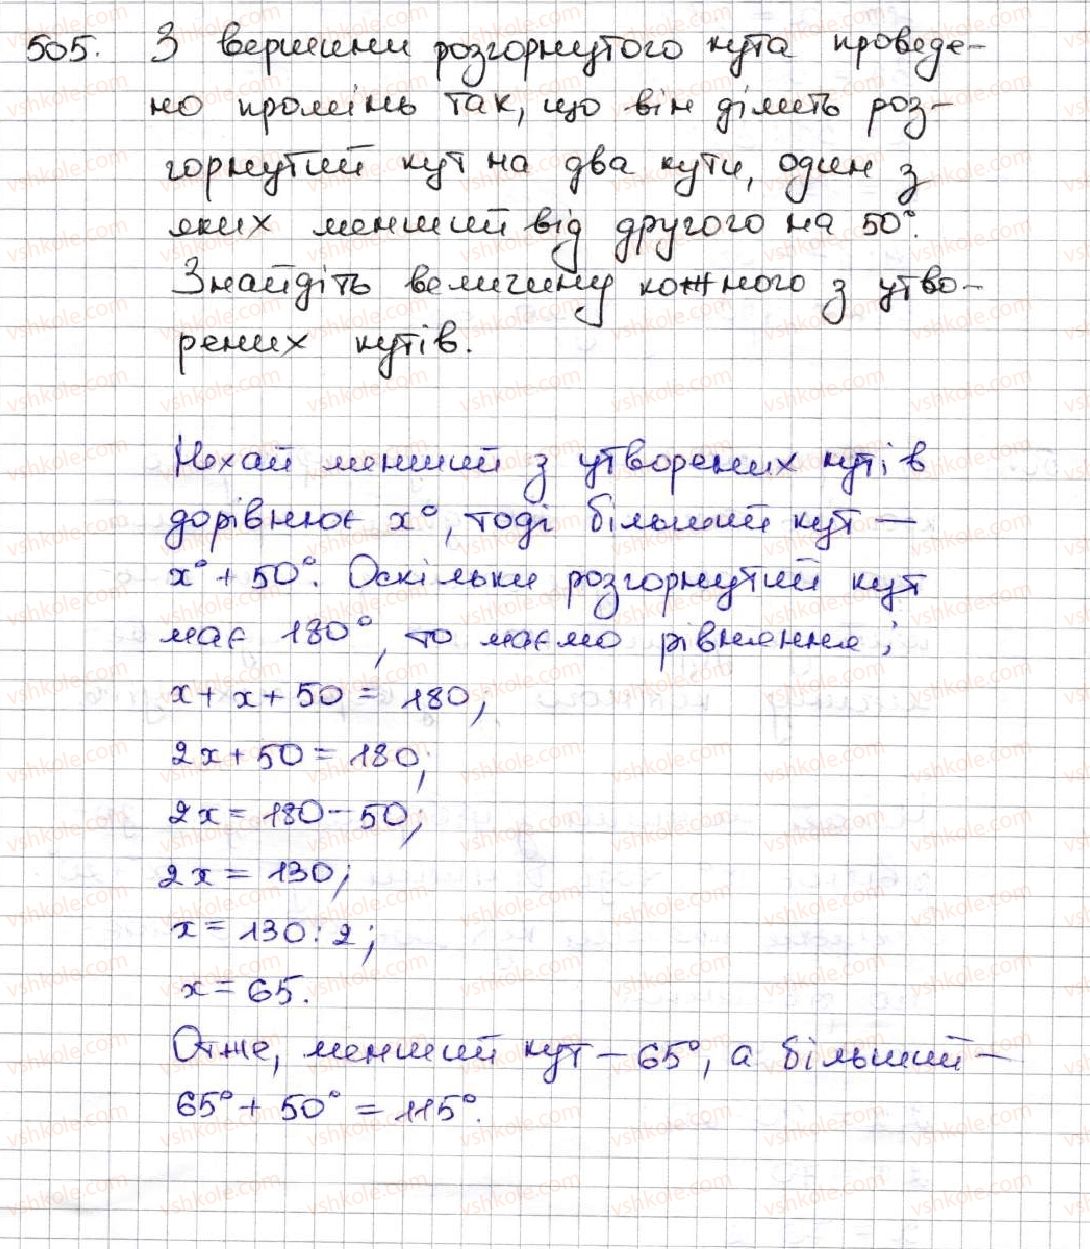 505. З вершини розгорнутого кута проведе-
но промінь так, що він ділить роз-
горнутий кут на два кути, один з
яких менший від другого на 50°.
Знайдіть величину кожного з утво-
рених кутів.
Нехай менший з утворених кутів
дорівнює x°, тоді більший кут —
x° + 50°. Оскільки розгорнутий кут
має 180°, то маємо рівняння:
x + x + 50 = 180;
2x + 50 = 180;
2x = 180 - 50;
2x = 130;
x = 130 : 2;
x = 65.
Отже, менший кут – 65°, а більший –
65° + 50° = 115°.